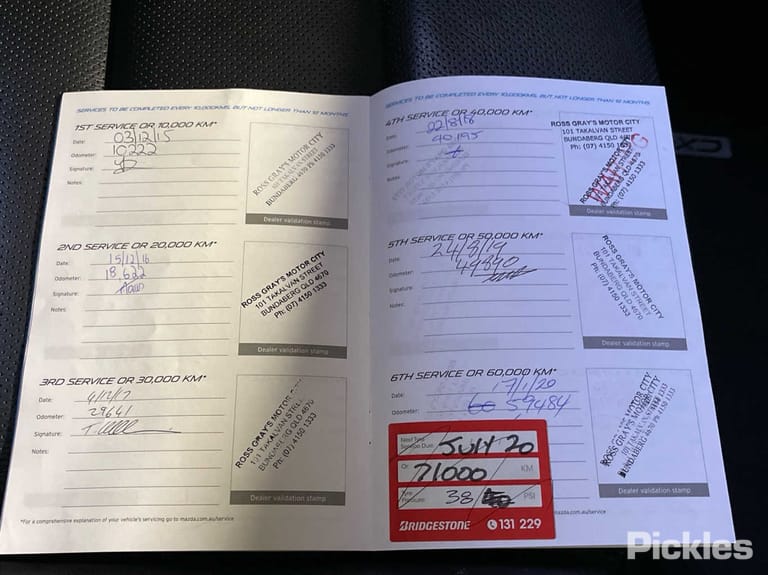 SERVICES TO BE COMPLETED EVERY 10,000KMS, BUT NOT LONGER THAN 12 MONTHS
1ST SERVICE OR 10,000 KM*
Date: 03/12/15
Odometer: 10222
Signature:
Notes:
ROSS GRAY'S MOTOR CITY
101 TAKALVAN STREET
BUNDABERG 4670 PH 4150 1333
Dealer validation stamp
2ND SERVICE OR 20,000 KM*
Date: 15/12/16
Odometer: 18,622
Signature:
Notes:
ROSS GRAY'S MOTOR CITY
101 TAKALVAN STREET
BUNDABERG QLD 4670
Ph: (07) 4150 1333
Dealer validation stamp
3RD SERVICE OR 30,000 KM*
Date: 4/12/17
Odometer: 28641
Signature:
Notes:
ROSS GRAY'S MOTOR CITY
101 TAKALVAN STREET
BUNDABERG QLD 4670
Ph: (07) 4150 1333
Dealer validation stamp
*For a comprehensive explanation of your vehicle's servicing go to mazda.com.au/service
SERVICES TO BE COMPLETED EVERY 10,000KMS, BUT NOT LONGER THAN 12 MONTHS
4TH SERVICE OR 40,000 KM*
Date: 22/8/18
Odometer: 40,195
Signature:
Notes:
ROSS GRAY'S MOTOR CITY
101 TAKALVAN STREET
BUNDABERG QLD 4670
Ph: (07) 4150 1333
Dealer validation stamp
5TH SERVICE OR 50,000 KM*
Date: 24/8/19
Odometer: 49890
Signature:
Notes:
ROSS GRAY'S MOTOR CITY
101 TAKALVAN STREET
BUNDABERG QLD 4670
Ph: (07) 4150 1333
Dealer validation stamp
6TH SERVICE OR 60,000 KM*
Date: 17/1/20
Odometer: 59484
ROSS GRAY'S MOTOR CITY
BUNDABERG 4670 PH 4150 1333
Dealer validation stamp
Next Tyre
Service Due: JULY 20
Or 71000 KM
Tyre
Pressure: 38 PSI
BRIDGESTONE 131 229
mazda.com.au/service
Pickles